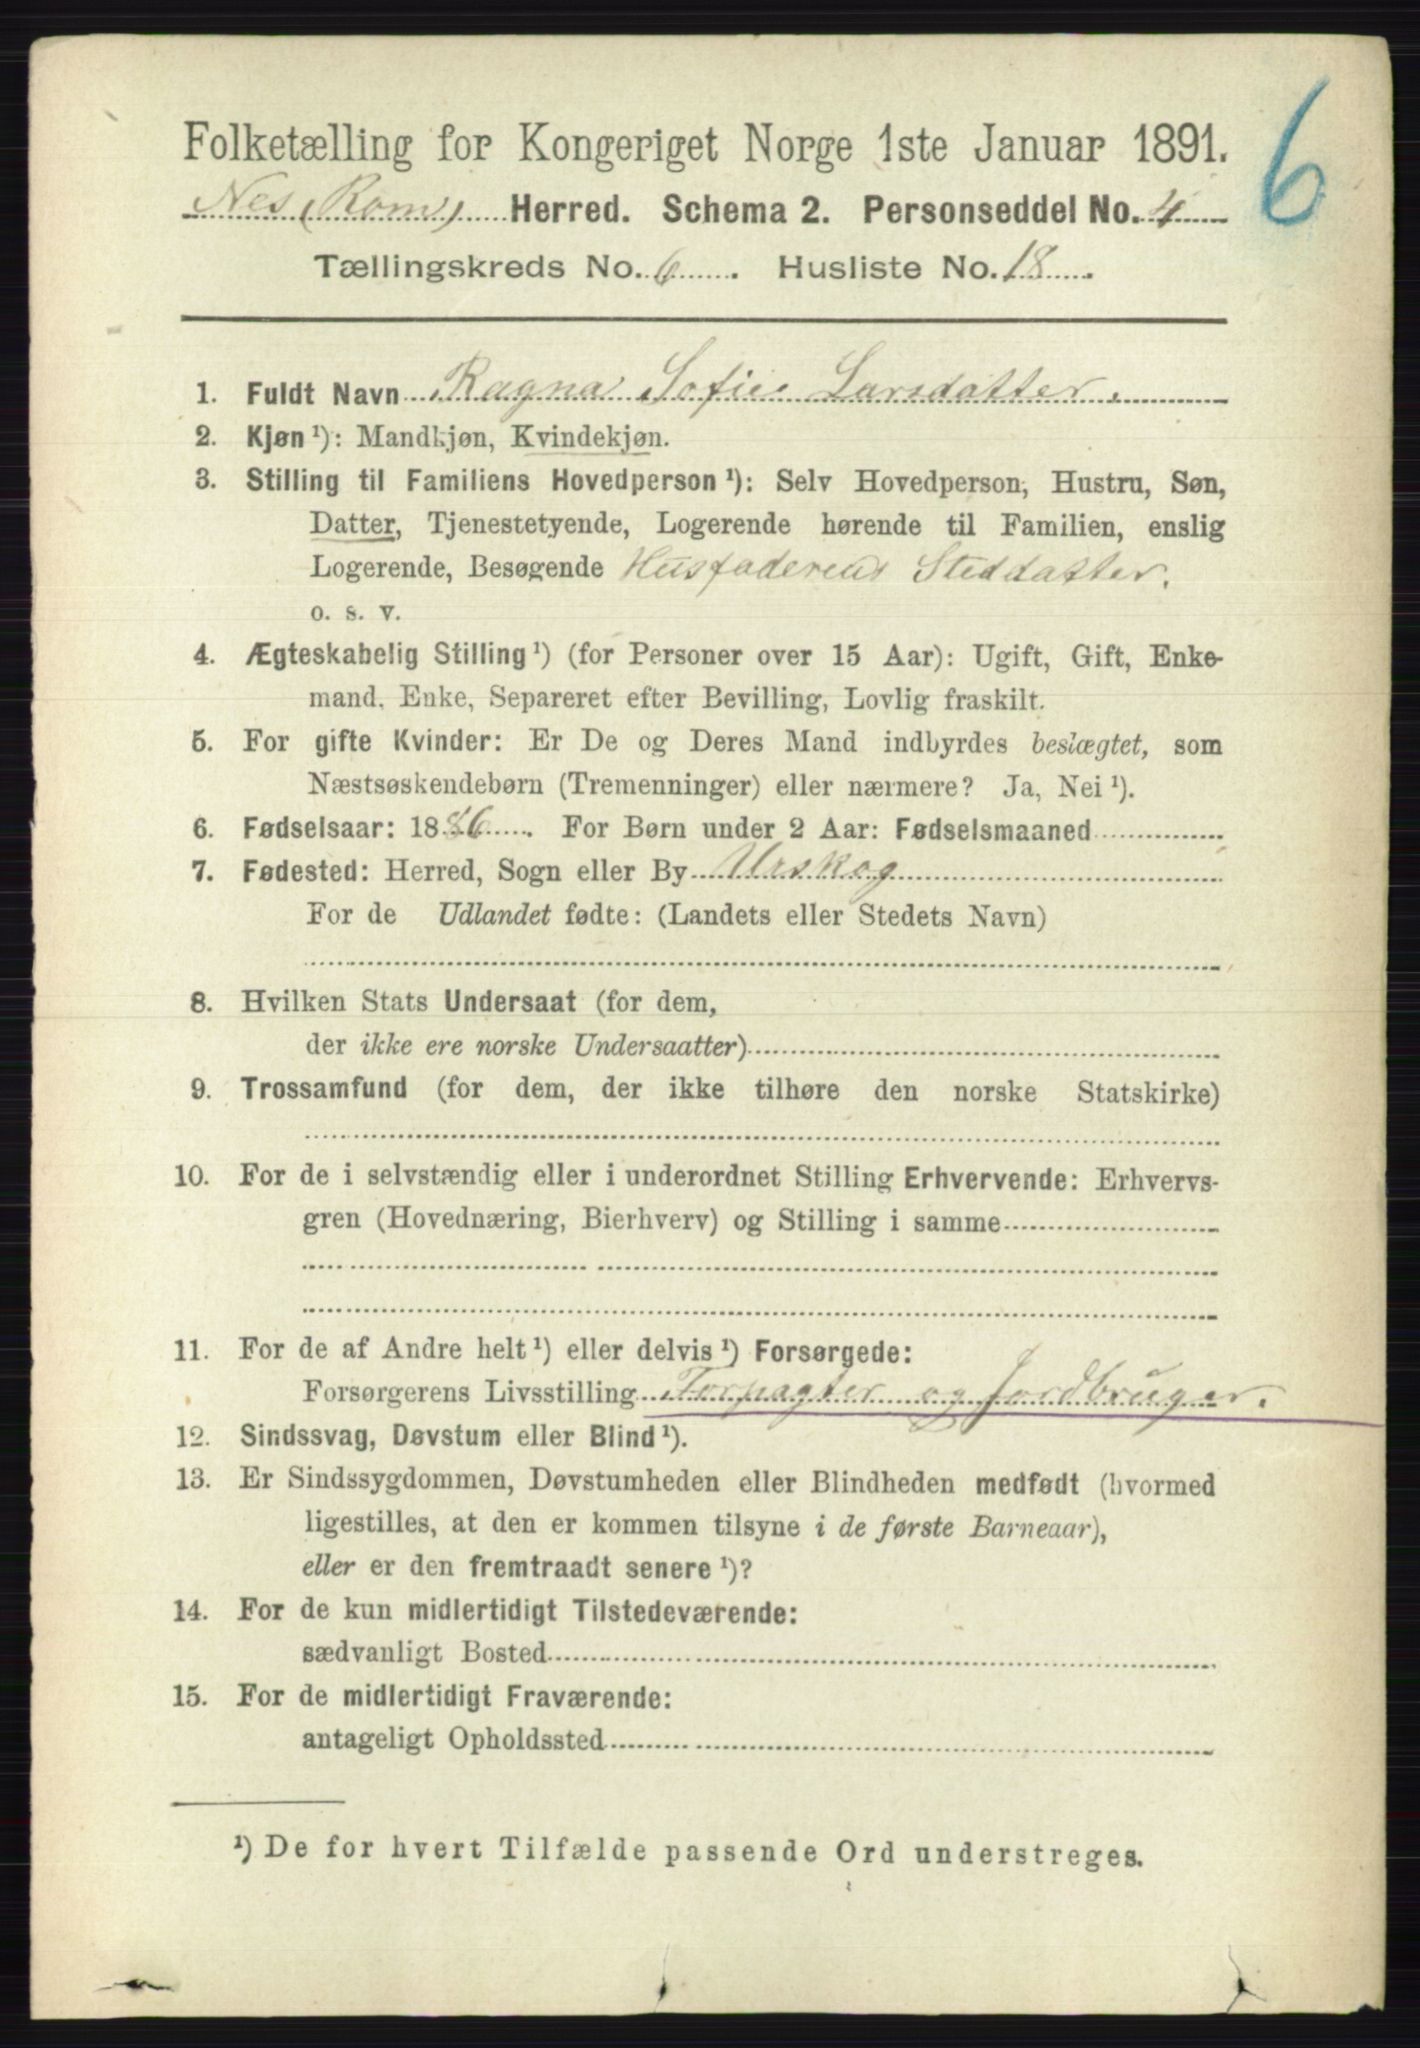 6
Folketælling for Kongeriget Norge 1ste Januar 1891.
Nes (Rom) Herred. Schema 2. Personseddel No. 4
Tællingskreds No. 6. Husliste No. 18.
1. Fuldt Navn Ragna Sofie Larsdatter.
2. Kjøn ¹): Mandkjøn, Kvindekjøn.
3. Stilling til Familiens Hovedperson ¹): Selv Hovedperson, Hustru, Søn,
Datter, Tjenestetyende, Logerende hørende til Familien, enslig
Logerende, Besøgende Husfaderens Steddatter.
o. s. v.
4. Ægteskabelig Stilling ¹) (for Personer over 15 Aar): Ugift, Gift, Enke-
mand, Enke, Separeret efter Bevilling, Lovlig fraskilt.
5. For gifte Kvinder: Er De og Deres Mand indbyrdes beslægtet, som
Næstsøskendebørn (Tremenninger) eller nærmere? Ja, Nei ¹).
6. Fødselsaar: 1886. For Børn under 2 Aar: Fødselsmaaned
7. Fødested: Herred, Sogn eller By Urskog
For de Udlandet fødte: (Landets eller Stedets Navn)
8. Hvilken Stats Undersaat (for dem,
der ikke ere norske Undersaatter)
9. Trossamfund (for dem, der ikke tilhøre den norske Statskirke)
10. For de i selvstændig eller i underordnet Stilling Erhvervende: Erhvervs-
gren (Hovednæring, Bierhverv) og Stilling i samme
11. For de af Andre helt ¹) eller delvis ¹) Forsørgede:
Forsørgerens Livsstilling Forpagter og Jordbruger.
12. Sindssvag, Døvstum eller Blind ¹).
13. Er Sindssygdommen, Døvstumheden eller Blindheden medfødt (hvormed
ligestilles, at den er kommen tilsyne i de første Barneaar),
eller er den fremtraadt senere ¹)?
14. For de kun midlertidigt Tilstedeværende:
sædvanligt Bosted
15. For de midlertidigt Fraværende:
antageligt Opholdssted
¹) De for hvert Tilfælde passende Ord understreges.